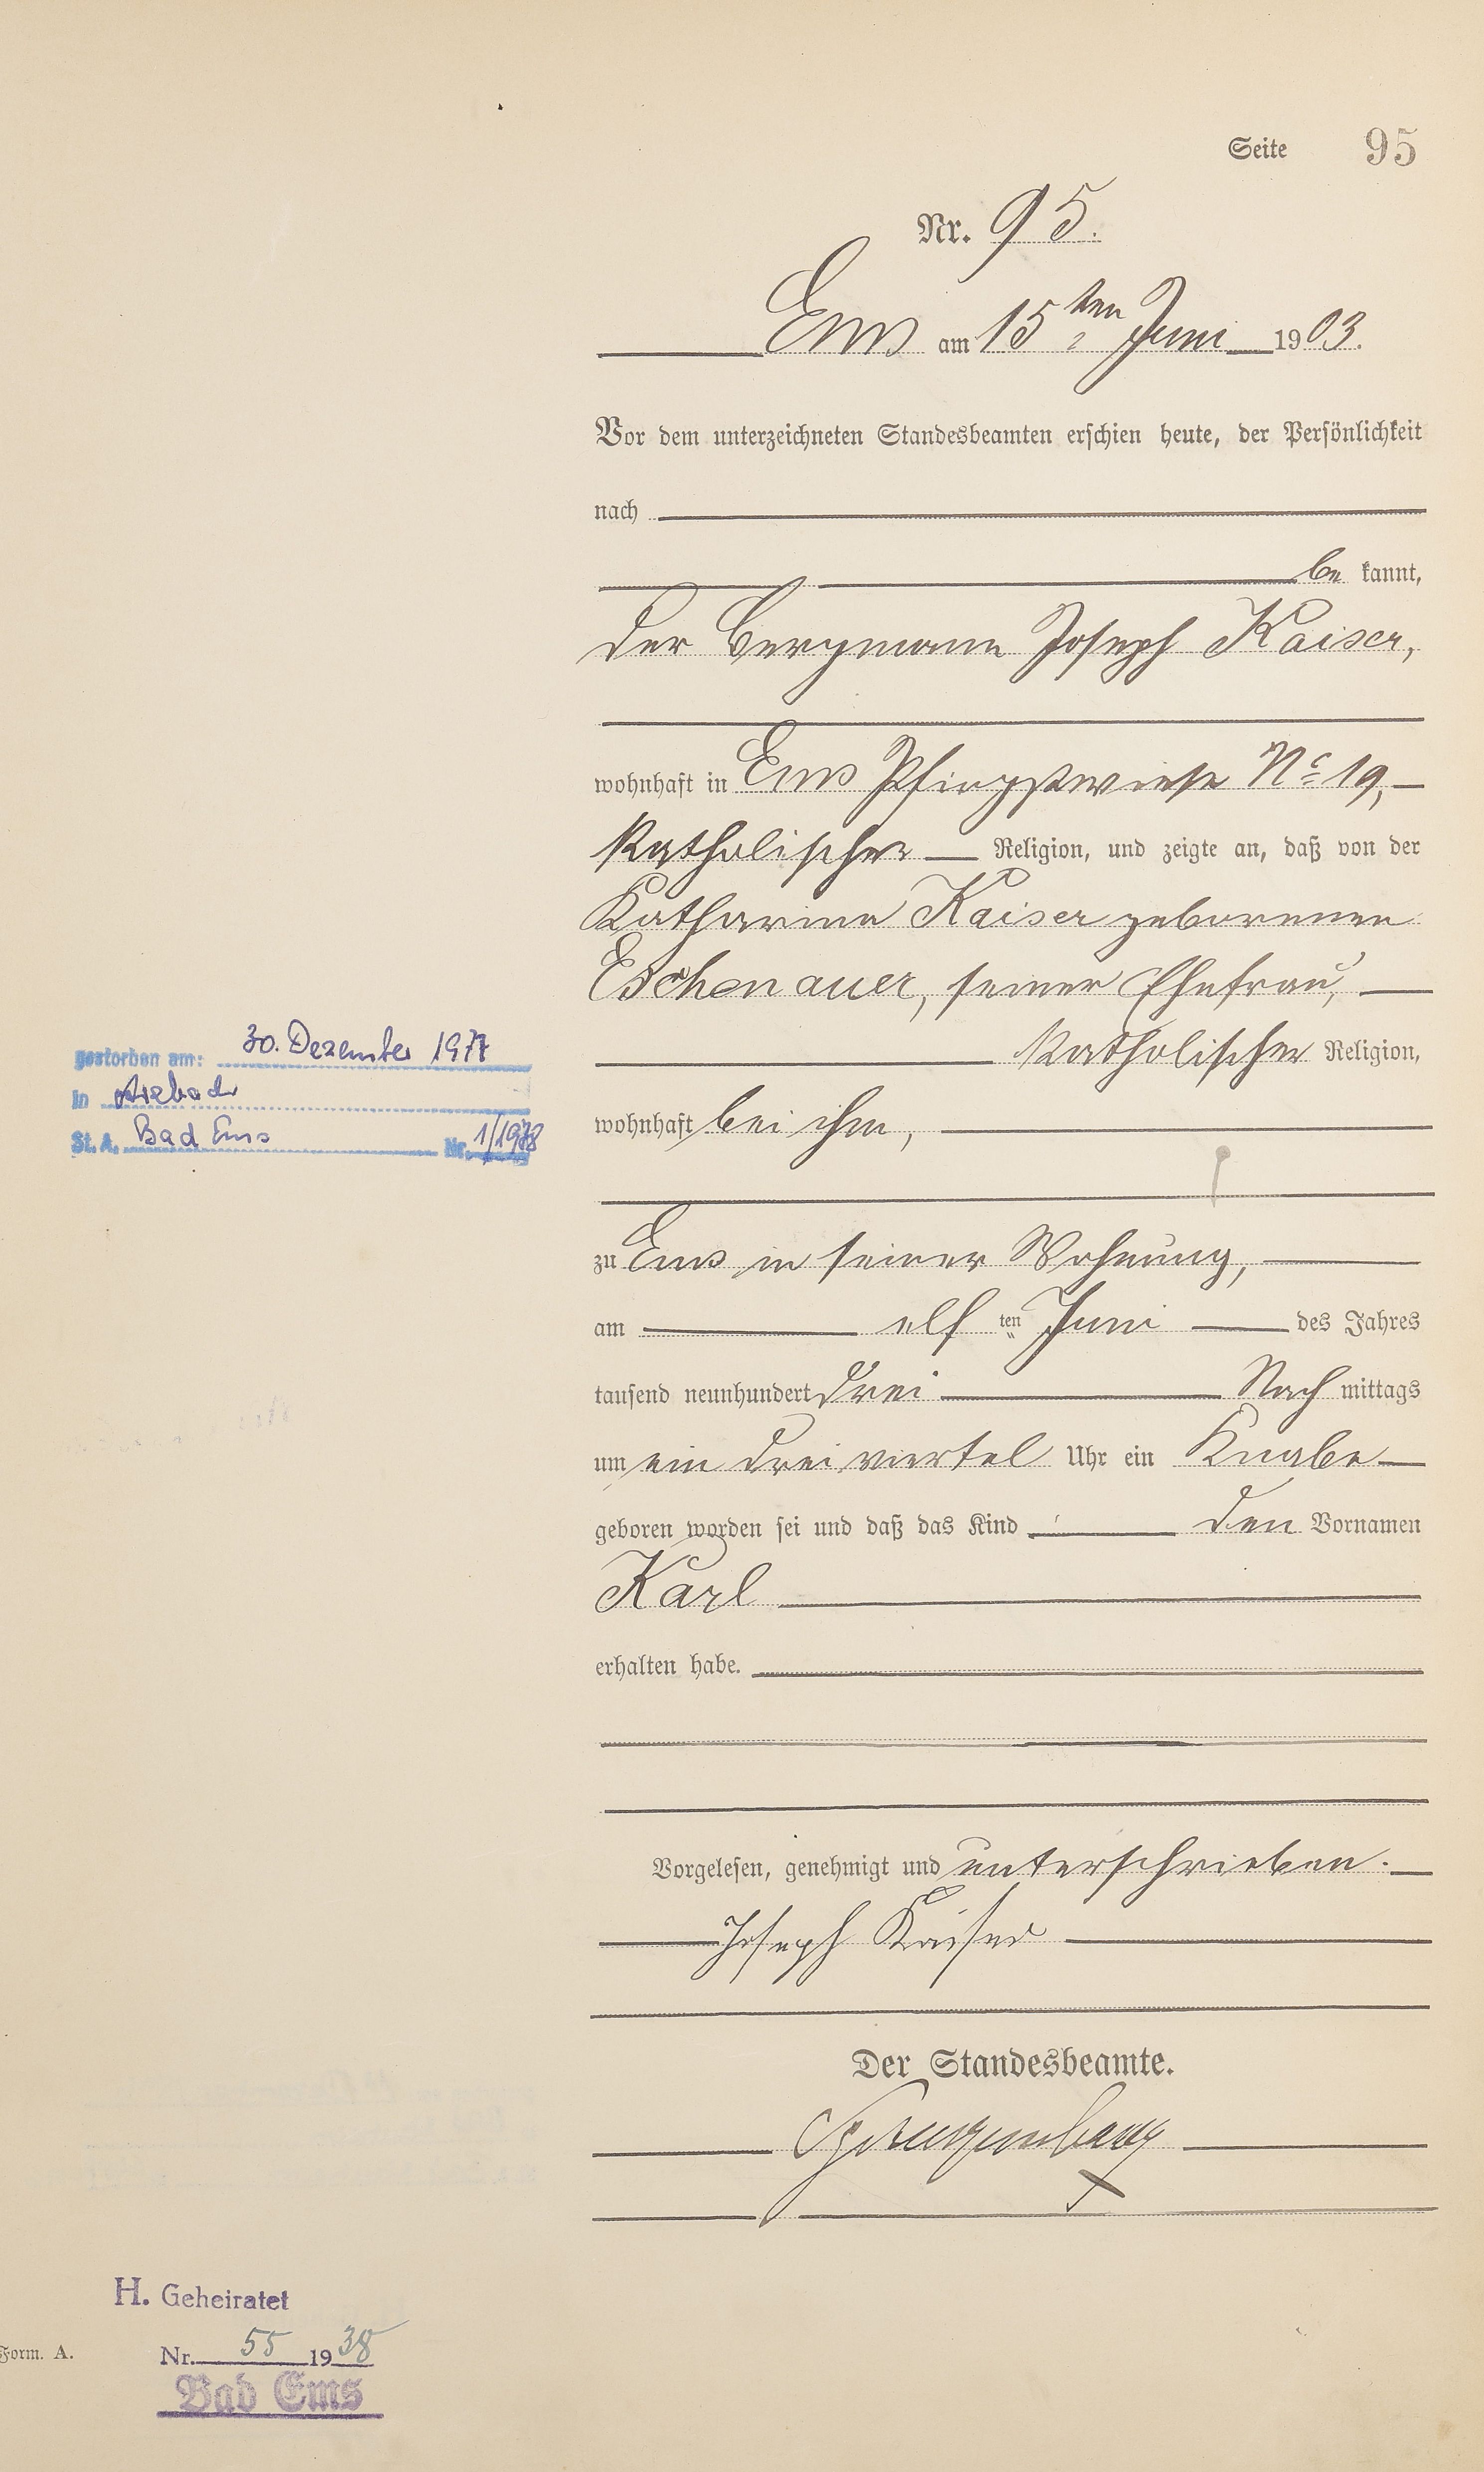 Seite 95
Nr. 95.
Ems am 15ten Juni 1903.
Vor dem unterzeichneten Standesbeamten erschien heute, der Persönlichkeit
nach
be kannt,
der Bergmann Joseph Kaiser,
wohnhaft in Ems Pfingstwiese No 19,
katholischer Religion, und zeigte an, daß von der
Katharina Kaiser geborenen
Eschenauer, seiner Ehefrau,
katholischer Religion,
wohnhaft bei ihm,
zu Ems in seiner Wohnung,
am elf ten Juni des Jahres
tausend neunhundert drei Nach mittags
um ein drei viertel Uhr ein Knabe
geboren worden sei und daß das Kind den Vornamen
Karl
erhalten habe.
Vorgelesen, genehmigt und unterschrieben.
Joseph Kaiser
Der Standesbeamte.
gestorben am: 30. Dezember 1977
in Arzbach
St. A. Bad Ems Nr. 1/1978
H. Geheiratet
Form. A. Nr. 55 1938
Bad Ems